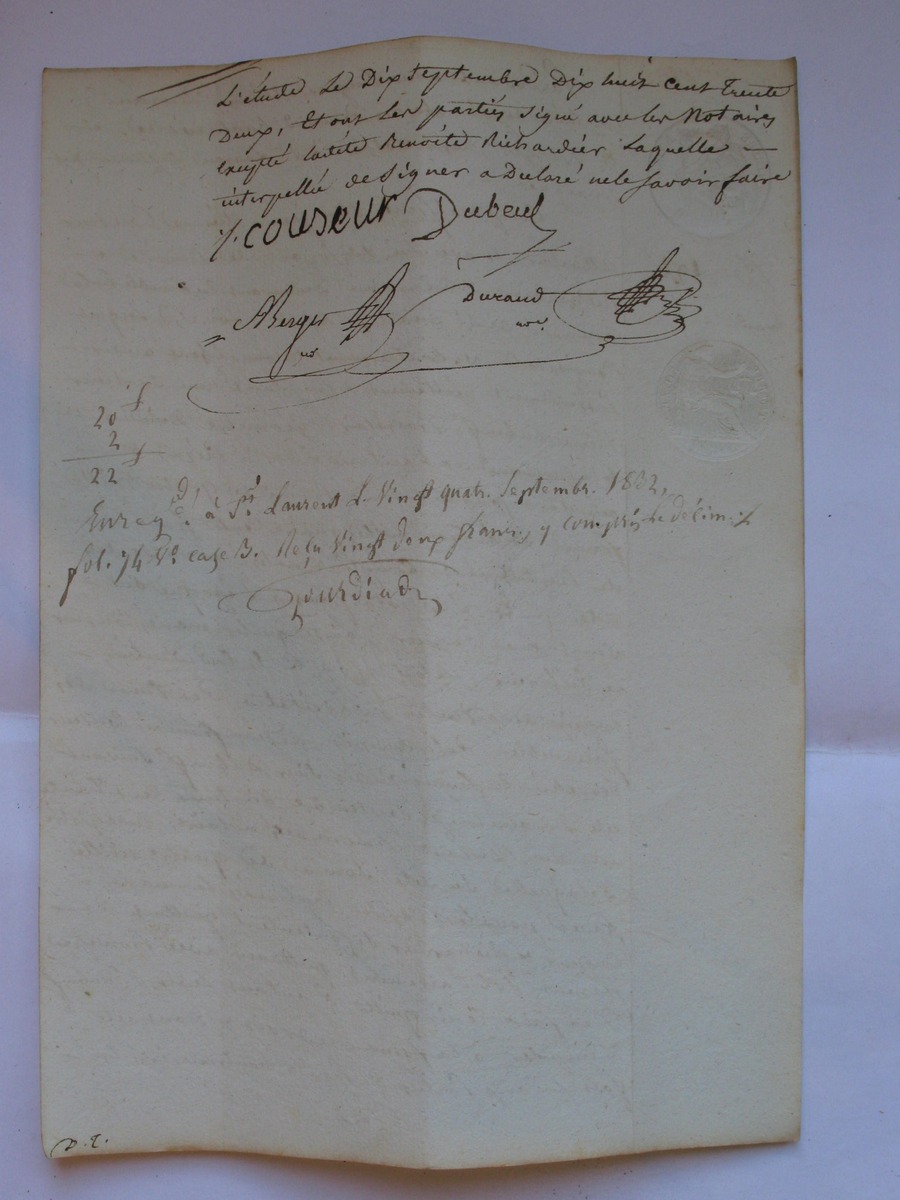 L'étude Le Dix Septembre Dix huit cent Trente
Deux, Et ont Les parties Signé avec les Notaires
Excepté ladite Benoîte Richardier Laquelle —
interpellée de Signer a Déclaré ne le Savoir faire
J. COUSEUR Dubeuf
Berger Durand
no. nore.
20 f
2
22 f
Enregé. à St. Laurent Le Vingt quatre Septembre 1832,
fol. 74 Vo. case 3. Reçu Vingt deux francs, y compris le décime
Gourdiat
D. T.